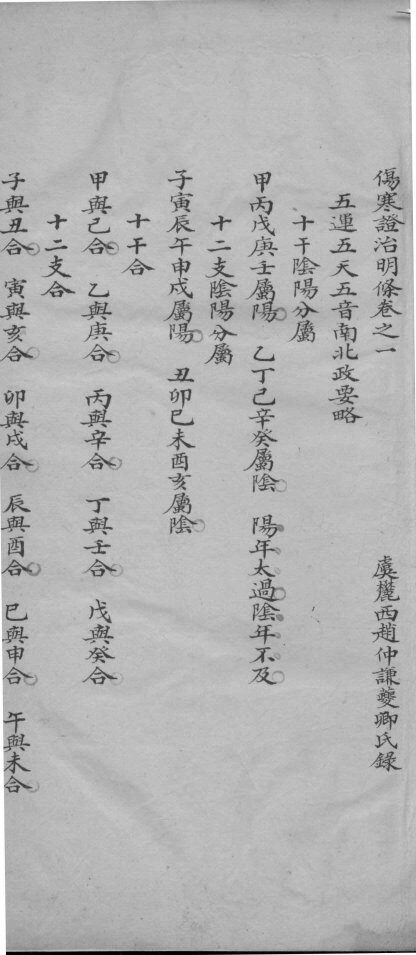 傷寒證治明條卷之一 虞麓西趙仲謙夔卿氏錄
五運五天五音南北政要略
十干陰陽分屬
甲丙戊庚壬屬陽 乙丁己辛癸屬陰 陽年太過陰年不及
十二支陰陽分屬
子寅辰午申戌屬陽 丑卯巳未酉亥屬陰
十干合
甲與己合 乙與庚合 丙與辛合 丁與壬合 戊與癸合
十二支合
子與丑合 寅與亥合 卯與戌合 辰與酉合 巳與申合 午與未合